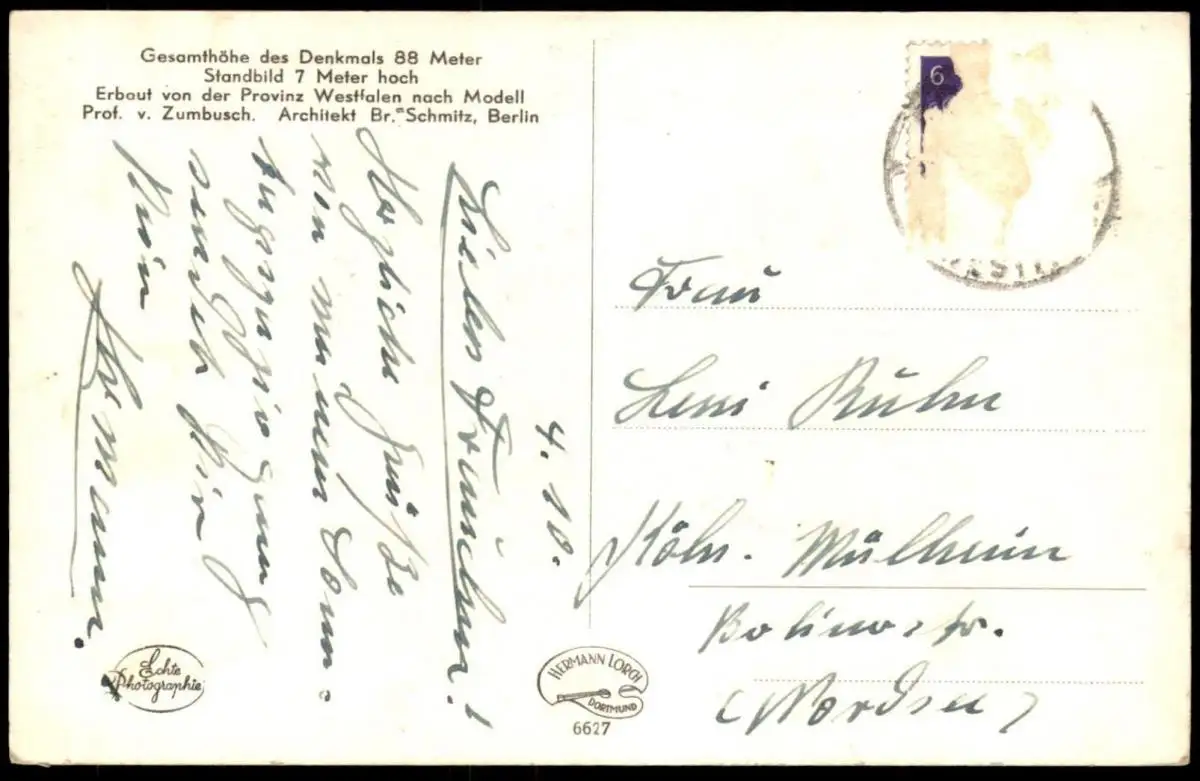 Gesamthöhe des Denkmals 88 Meter
Standbild 7 Meter hoch
Erbaut von der Provinz Westfalen nach Modell
Prof. v. Zumbusch. Architekt Br. Schmitz, Berlin
4. 10.
Liebes Frauchen!
Herzliche Grüße
von meiner Sonn-
tags
sendet Dir
Dein
Hermann.
6
Frau
Leni Kuhn
Köln-Mülheim
str.
(Nordsee)
Echte
Photographie
HERMANN LORCH
DORTMUND
6627